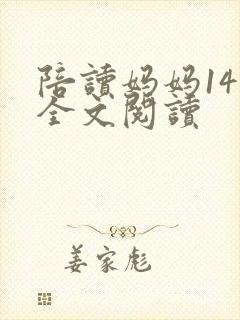 陪讀妈妈14
全文閱讀
姜家彪